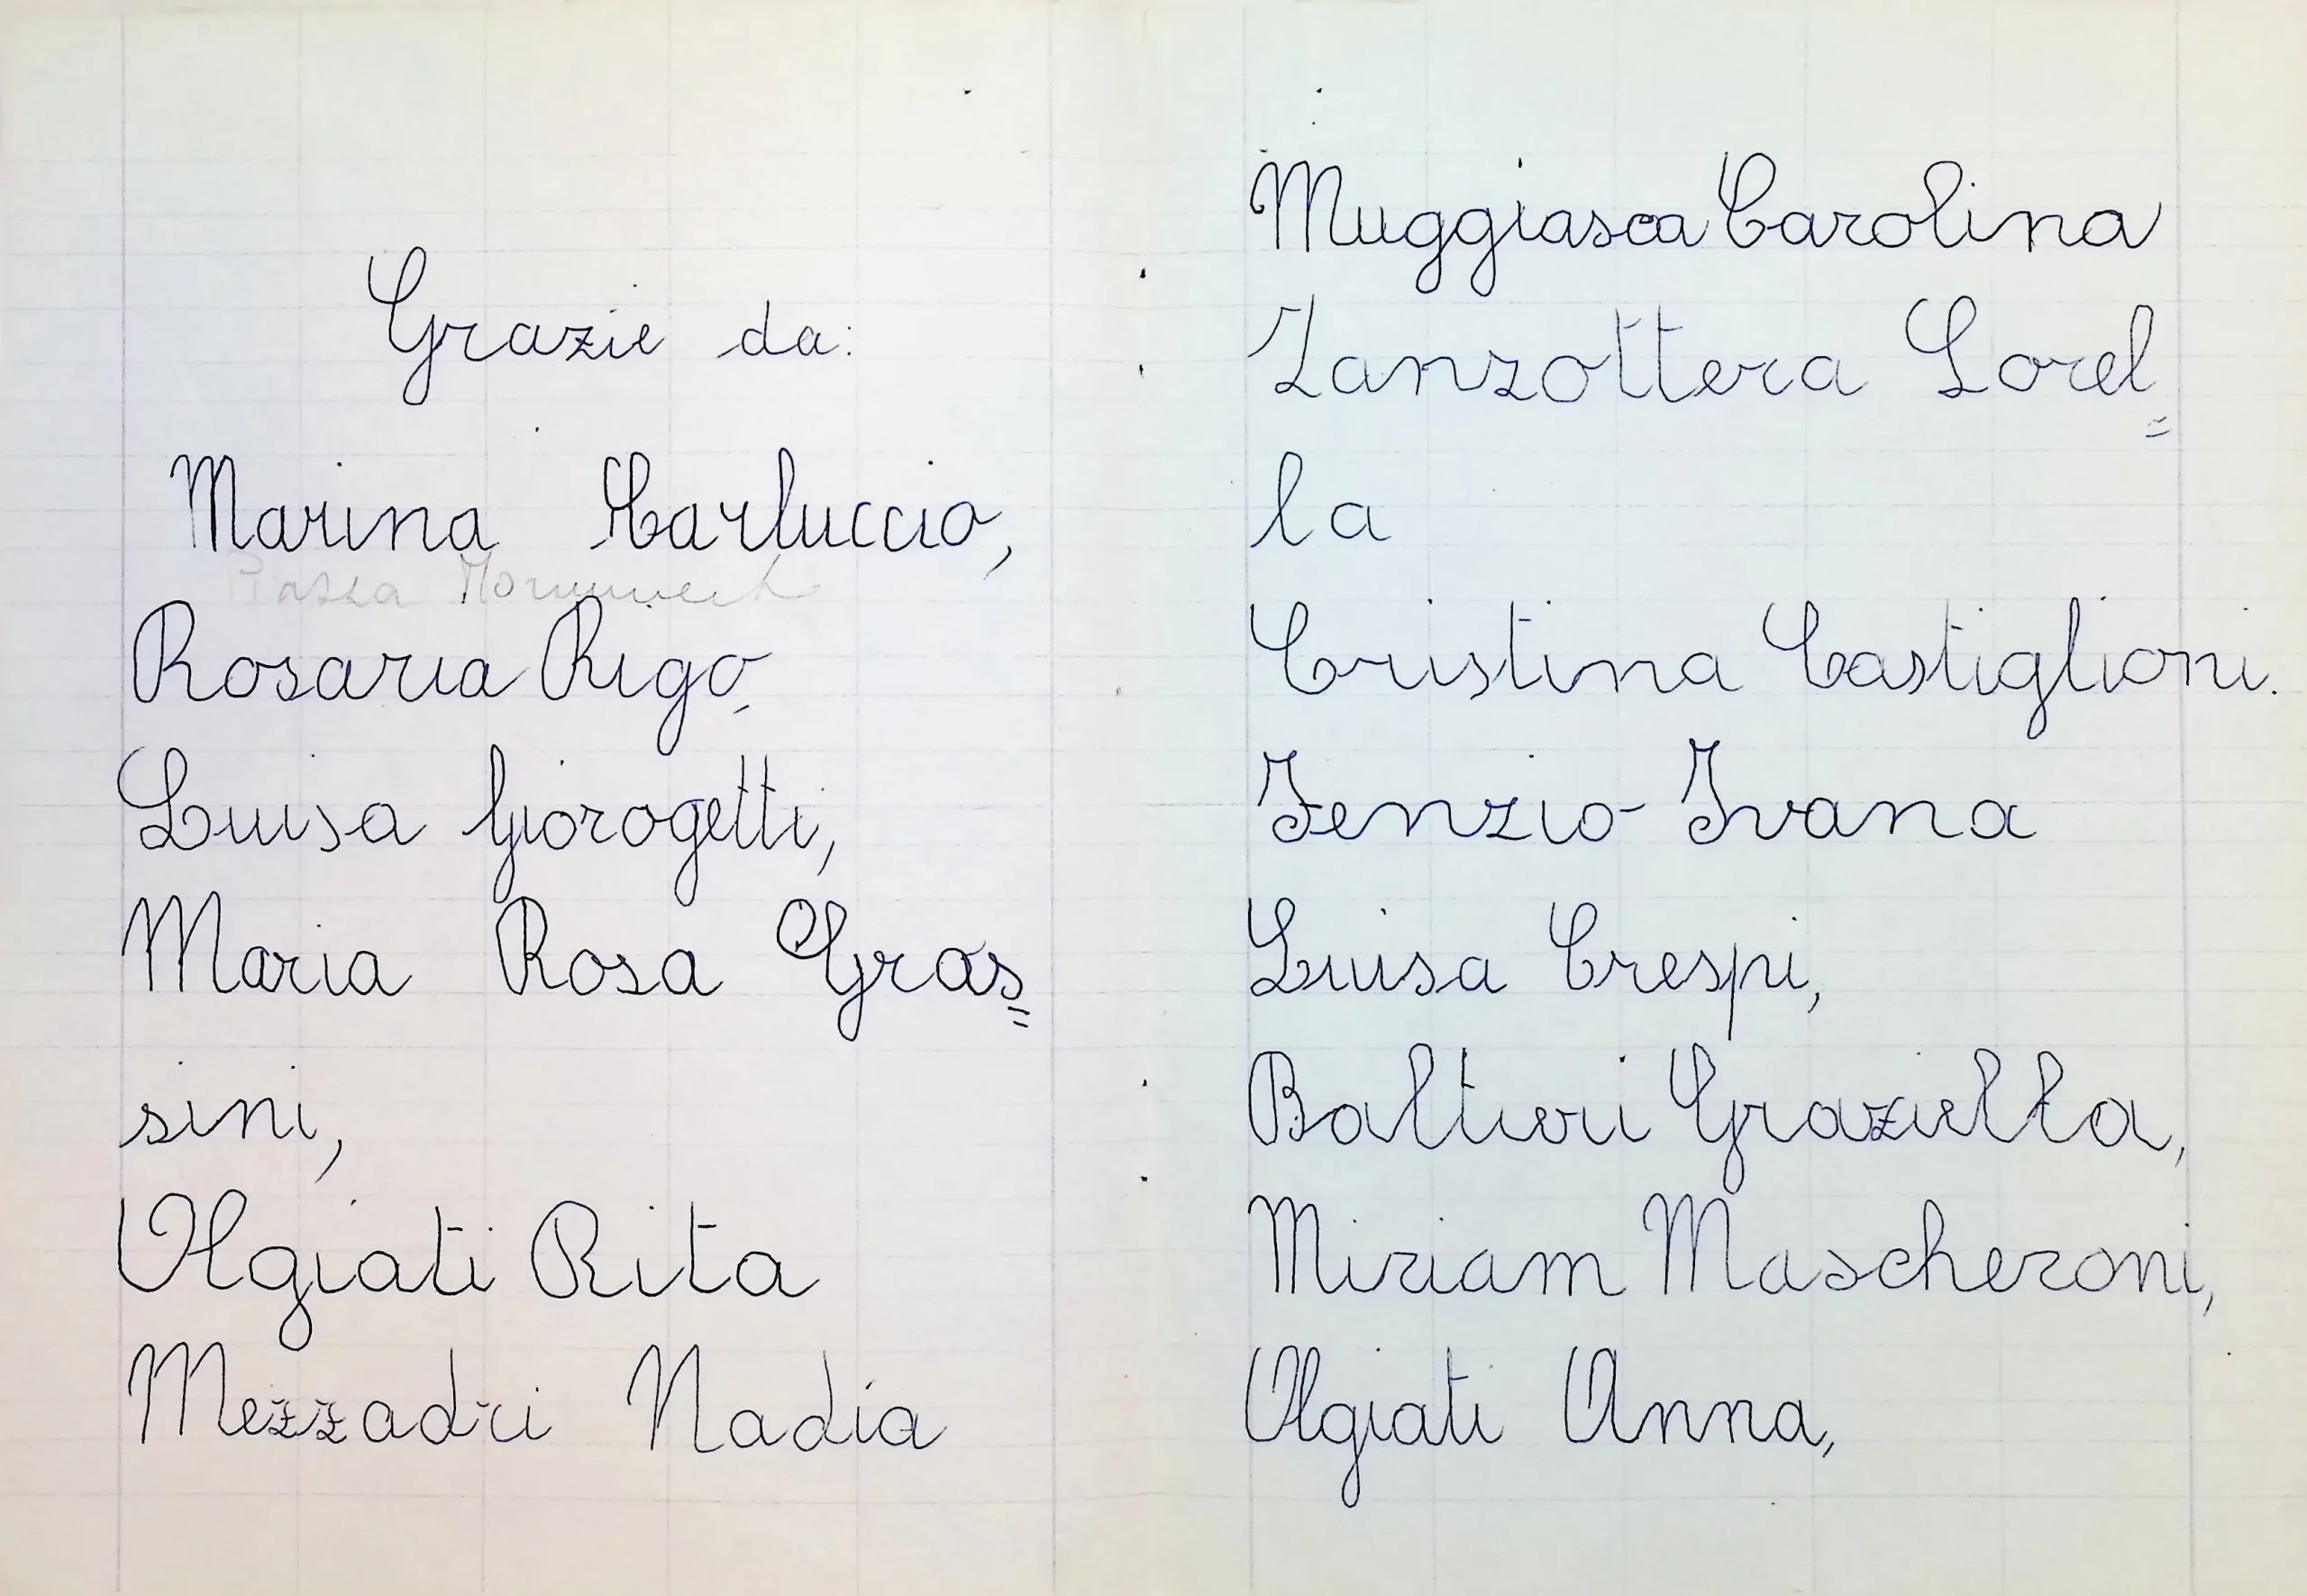 Grazie da:
Marina Carluccio,
Rosaria Rigo,
Luisa Giorogetti,
Maria Rosa Gras=
sini,
Olgiati Rita
Mezzadri Nadia
Muggiasca Carolina
Zanzottera Lorel=
la
Cristina Castiglioni.
Fenzio Ivana
Luisa Crespi,
Baltieri Graziella,
Miriam Mascheroni,
Olgiati Anna,